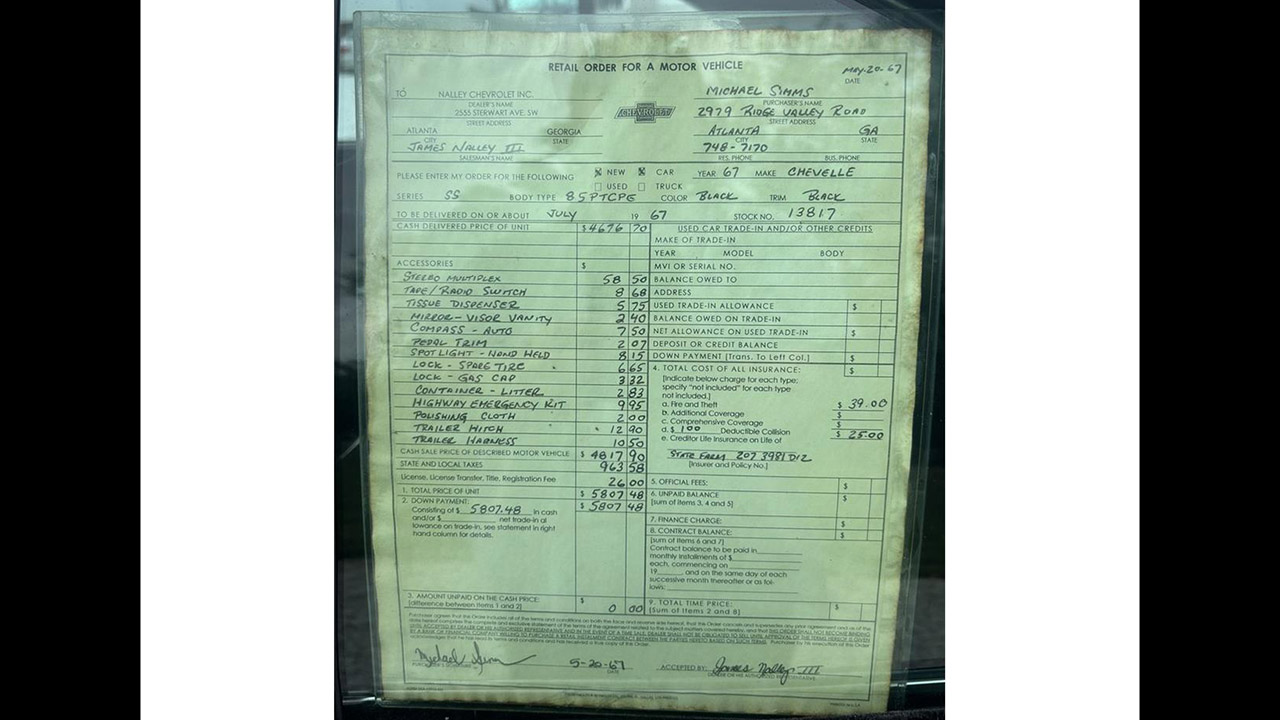 RETAIL ORDER FOR A MOTOR VEHICLE
MAY-20-67
DATE
TO NALLEY CHEVROLET INC.
DEALER'S NAME
2555 STERWART AVE. SW
STREET ADDRESS
ATLANTA GEORGIA
CITY STATE
JAMES NALLEY III
SALESMAN'S NAME
CHEVROLET
MICHAEL SIMMS
PURCHASER'S NAME
2979 RIDGE VALLEY ROAD
STREET ADDRESS
ATLANTA GA
CITY STATE
748-7170
RES. PHONE BUS. PHONE
PLEASE ENTER MY ORDER FOR THE FOLLOWING NEW CAR YEAR 67 MAKE CHEVELLE
USED TRUCK
SERIES SS BODY TYPE 85PTCPE COLOR BLACK TRIM BLACK
TO BE DELIVERED ON OR ABOUT JULY 19 67 STOCK NO. 13817
CASH DELIVERED PRICE OF UNIT $4676 70
ACCESSORIES $
STEREO MULTIPLEX 58 50
TAPE/RADIO SWITCH 8 68
TISSUE DISPENSER 5 75
MIRROR-VISOR VANITY 2 40
COMPASS - AUTO 7 50
PEDAL TRIM 2 07
SPOTLIGHT - HAND HELD 8 15
LOCK - SPARE TIRE 6 65
LOCK - GAS CAP 3 32
CONTAINER - LITTER 2 83
HIGHWAY EMERGENCY KIT 9 95
POLISHING CLOTH 2 00
TRAILER HITCH 12 90
TRAILER HARNESS 10 50
CASH SALE PRICE OF DESCRIBED MOTOR VEHICLE $ 4817 90
STATE AND LOCAL TAXES 963 58
License, License Transfer, Title, Registration Fee 26 00
1. TOTAL PRICE OF UNIT $ 5807 48
2. DOWN PAYMENT: $ 5807 48
Consisting of $ 5807.48 in cash
and/or $ net trade-in al
lowance on trade-in, see statement in right
hand column for details.
3. AMOUNT UNPAID ON THE CASH PRICE: $
(difference between Items 1 and 2) 0 00
USED CAR TRADE-IN AND/OR OTHER CREDITS
MAKE OF TRADE-IN
YEAR MODEL BODY
MVI OR SERIAL NO.
BALANCE OWED TO
ADDRESS
USED TRADE-IN ALLOWANCE $
BALANCE OWED ON TRADE-IN
NET ALLOWANCE ON USED TRADE-IN $
DEPOSIT OR CREDIT BALANCE
DOWN PAYMENT (Trans. To Left Col.) $
4. TOTAL COST OF ALL INSURANCE: $
(Indicate below charge for each type;
specify "not included" for each type
not included.)
a. Fire and Theft $ 39.00
b. Additional Coverage $
c. Comprehensive Coverage $
d. $ 100 Deductible Collision $ 25.00
e. Creditor Life Insurance on Life of
STATE FARM 207 3981 D12
(Insurer and Policy No.)
5. OFFICIAL FEES: $
6. UNPAID BALANCE $
(sum of Items 3, 4 and 5)
7. FINANCE CHARGE: $
8. CONTRACT BALANCE: $
(sum of Items 6 and 7)
Contract balance to be paid in
monthly installments of $
each, commencing on
19 , and on the same day of each
successive month thereafter or as fol-
lows:
9. TOTAL TIME PRICE: $
(Sum of Items 2 and 8)
Michael Simm 5-20-67 ACCEPTED BY: James Nalley III
PURCHASER'S SIGNATURE DATE DEALER OR HIS AUTHORIZED REPRESENTATIVE